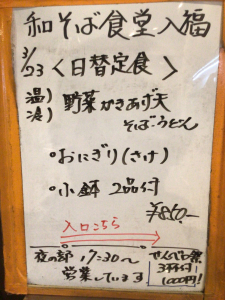 和そば食堂入福
3/23 <日替定食>
温) 冷) 野菜かきあげ天
そば・うどん
・おにぎり(さけ)
・小鉢 2品付
¥860-
入口こちら
夜の部 17:30〜
営業しています
せんべろ祭
3杯付
1000円!